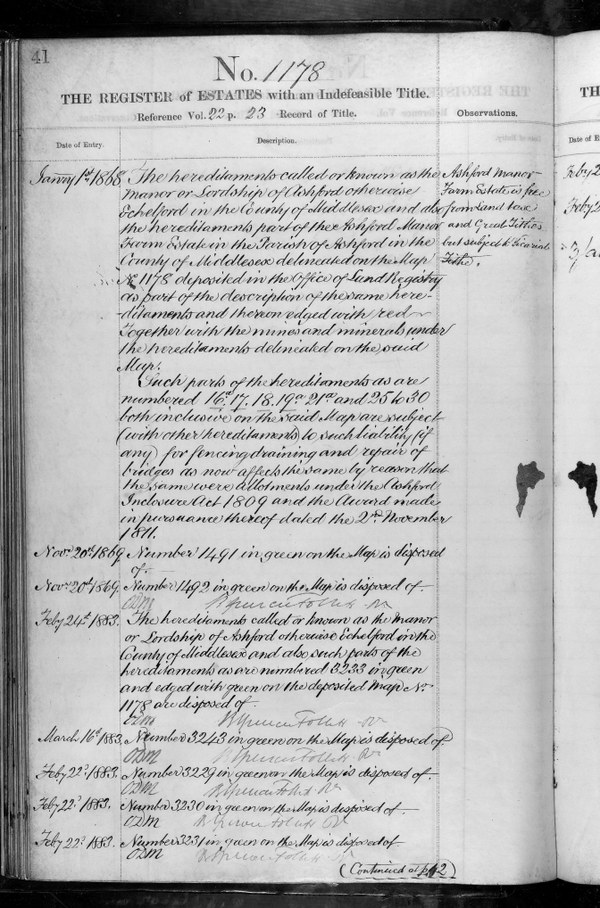 41
No. 1178
THE REGISTER of ESTATES with an Indefeasible Title.
Reference Vol. 22 p. 23 Record of Title.
Observations.
Date of Entry.
Description.
Janry 1st 1868
The hereditaments called or known as the
Manor or Lordship of Ashford otherwise
Echelford in the County of Middlesex and also
the hereditaments part of the Ashford Manor
Farm Estate in the Parish of Ashford in the
County of Middlesex delineated on the Map
No. 1178 deposited in the Office of Land Registry
as part of the description of the same here-
ditaments and thereon edged with red
Together with the mines and minerals under
the hereditaments delineated on the said
Map.
Ashford Manor
Farm Estate is free
from Land tax
and Great Tithes
but subject to Vicarial
Tithe.
Such parts of the hereditaments as are
numbered 16a. 17. 18. 19a 21a and 25 to 30
both inclusive on the said Map are subject
(with other hereditaments) to such liability (if
any) for fencing draining and repair of
bridges as now affects the same by reason that
the same were allotments under the Ashford
Inclosure Act 1809 and the Award made
in pursuance thereof dated the 2nd November
1811.
Novr. 20th 1869. Number 1491 in green on the Map is disposed
of.
Novr. 20th 1869. Number 1492 in green on the Map is disposed of.
ODM
Feby 24th 1883. The hereditaments called or known as the Manor
or Lordship of Ashford otherwise Echelford in the
County of Middlesex and also such parts of the
hereditaments as are numbered 3233 in green
and edged with green on the deposited Map No.
1178 are disposed of.
ODM
March 16th 1883. Number 3243 in green on the Map is disposed of
ODM
Feby 22d 1883. Number 3229 in green on the Map is disposed of.
ODM
Feby 22d 1883. Number 3230 in green on the Map is disposed of.
ODM
Feby 22d 1883. Number 3231 in green on the Map is disposed of
ODM
(Continued at p 42)
TH
Date of E
Feby 2
Feby 2